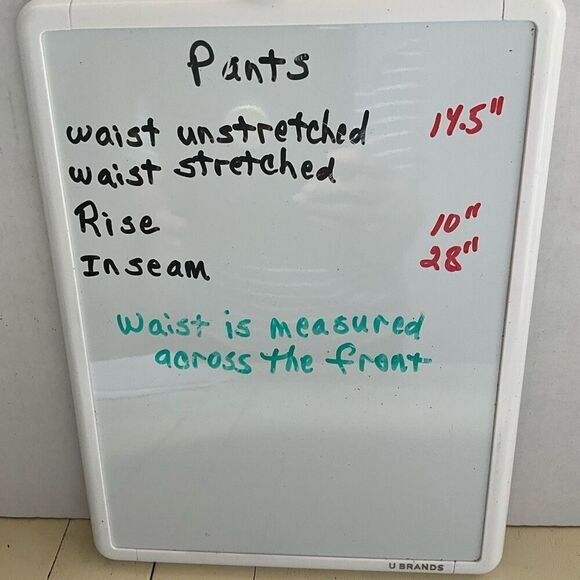 Pants
waist unstretched 14.5"
waist stretched
Rise 10"
Inseam 28"
Waist is measured
across the front
U BRANDS